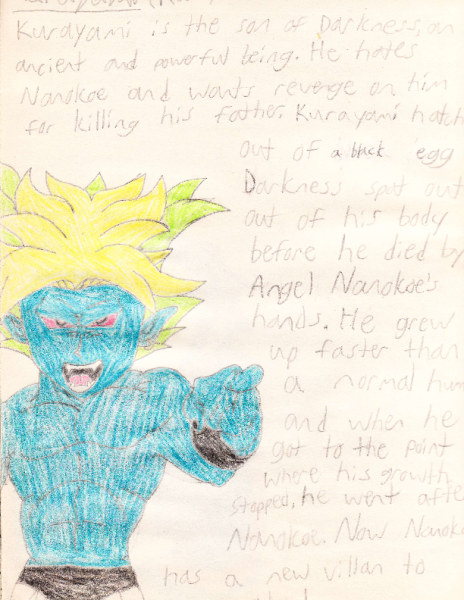 Kurayami is the son of Darkness, an
ancient and powerful being. He hates
Nanokoe and wants revenge on him
for killing his father. Kurayami hatch
out of a black egg
Darkness spat out
out of his body
before he died by
Angel Nanokoe's
hands. He grew
up faster than
a normal hum
and when he
got to the point
where his growth
stopped, he went afte
Nanokoe. Now Nanoko
has a new villan to